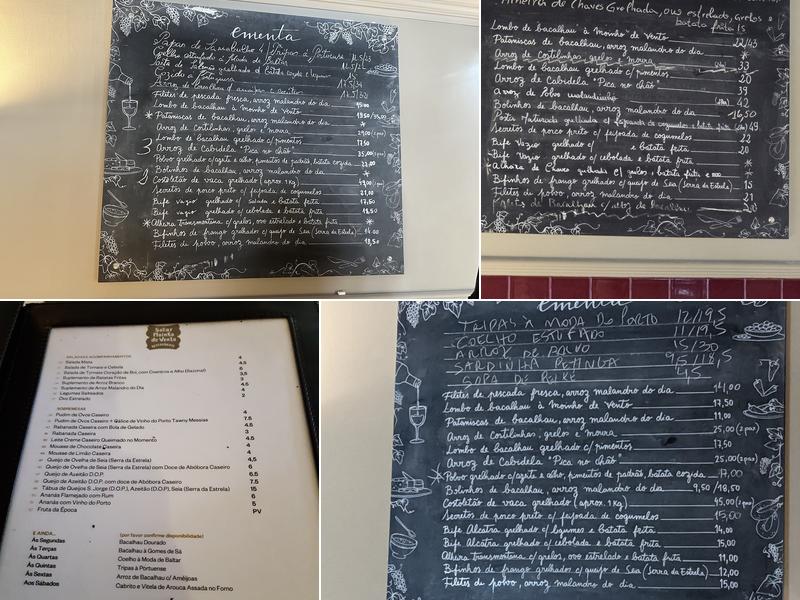 ementa
Papas de Sarrabulho
Filetes de pescada fresca, arroz malandro do dia
Lombo de bacalhau à Moinho de Vento
* Pataniscas de bacalhau, arroz malandro do dia *
Arroz de Costelinhas, grelos e moura
Lombo de bacalhau grelhado c/ pimentos 17,50
Arroz de Cabidela "Pica no chão"
Polvo grelhado c/azeite e alho, pimentos de padrón, batata cozida
Bolinhos de bacalhau, arroz malandro do dia *
Costoletão de vaca grelhado (aprox. 1 Kg)
Secretos de porco preto c/ feijoada de cogumelos
Bife Vazio grelhado c/ salada e batata frita 17,50
Bife Vazio grelhado c/ cebolada e batata frita 18,50
* Alheira transmontana c/ grelos, ovo estrelado e batata frita *
Bifinhos de frango grelhados c/ queijo de Seia (Serra da Estrela) 14,00
Filetes de polvo, arroz malandro do dia 18,50
de Chaves Grelhada, ovo estrelado, Grelos e
batata frita 15
Lombo de bacalhau à Moinho de Vento 22/43
Pataniscas de bacalhau, arroz malandro do dia *
Arroz de Costelinhas, grelos e moura 33
Lombo de bacalhau grelhado c/ pimentos 20
Arroz de Cabidela "Pica no chão" 39
Arroz de Polvo malandrinho 42
Bolinhos de bacalhau, arroz malandro do dia *16,50
Posta Maturada grelhada c/ feijoada de cogumelos e batata frita 49
Secretos de porco preto c/ feijoada de cogumelos 22
Bife Vazio grelhado c/ e batata frita 20
Bife Vazio grelhado c/ cebolada e batata frita *
Alheira de Chaves grelhada c/ grelos, batata frita e ovo *
Bifinhos de frango grelhados c/ queijo de Seia (Serra da Estrela) 15
Filetes de polvo, arroz malandro do dia 21
20
Solar
Moinho
de Vento
RESTAURANTE
SALADAS E ACOMPANHAMENTOS
Salada Mista 4
Salada de Tomate e Cebola 4.5
Salada de Tomate Coração de Boi, com Coentros e Alho (Sazonal) 6
Suplemento de Batatas Fritas 3.5
Suplemento de Arroz Branco 3
Suplemento de Arroz Malandro do Dia 4.5
Legumes Salteados 4
Ovo Estrelado 2
SOBREMESAS
Pudim de Ovos Caseiro 4
Pudim de Ovos Caseiro + Cálice de Vinho do Porto Tawny Messias 7.5
Rabanada Caseira com Bola de Gelado 4.5
Rabanada Caseira 3
Leite Creme Caseiro Queimado no Momento 4.5
Mousse de Chocolate Caseira 4
Mousse de Limão Caseira 4
Queijo de Ovelha de Seia (Serra da Estrela) 4.5
Queijo de Ovelha de Seia (Serra da Estrela) com Doce de Abóbora Caseiro 6
Queijo de Azeitão D.O.P. 6.5
Queijo de Azeitão D.O.P. com doce de Abóbora Caseiro 7.5
Tábua de Queijos S. Jorge (D.O.P.), Azeitão (D.O.P), Seia (Serra da Estrela) 15
Ananás Flamejado com Rum 6
Ananás com Vinho do Porto 5
Fruta da Época PV
E AINDA... (por favor confirme disponibilidade)
Às Segundas Bacalhau Dourado
Às Terças Bacalhau à Gomes de Sá
Às Quartas Coelho à Moda de Baltar
Às Quintas Tripas à Portuense
Às Sextas Arroz de Bacalhau c/ Amêijoas
Aos Sábados Cabrito e Vitela de Arouca Assada no Forno
ementa
TRIPAS À MODA DO PORTO 12/19,5
COELHO ESTUFADO 11/19,5
ARROZ DE POLVO 15/30
SARDINHA PETINGA 9,5/18,5
SOPA DE PEIXE 4,5
Filetes de pescada fresca, arroz malandro do dia 14,00
Lombo de bacalhau à Moinho de Vento 17,50
Pataniscas de bacalhau, arroz malandro do dia 11,00
Arroz de Costelinhas, grelos e moura 25,00 (2 pax)
Lombo de bacalhau grelhado c/ pimentos 17,50
Arroz de Cabidela "Pica no chão" 25,00 (2 pax)
Polvo grelhado c/azeite e alho, pimentos de padrón, batata cozida 17,00
Bolinhos de bacalhau, arroz malandro do dia 9,50/18,50
Costoletão de vaca grelhado (aprox. 1 Kg) 45,00 (2 pax)
Secretos de porco preto c/ feijoada de cogumelos 15,00
Bife Alcatra grelhado c/ legumes e batata frita 14,00
Bife Alcatra grelhado c/ cebolada e batata frita 15,00
Alheira transmontana c/ grelos, ovo estrelado e batata frita 11,00
Bifinhos de frango grelhados c/ queijo de Seia (Serra da Estrela) 12,00
Filetes de polvo, arroz malandro do dia 15,00